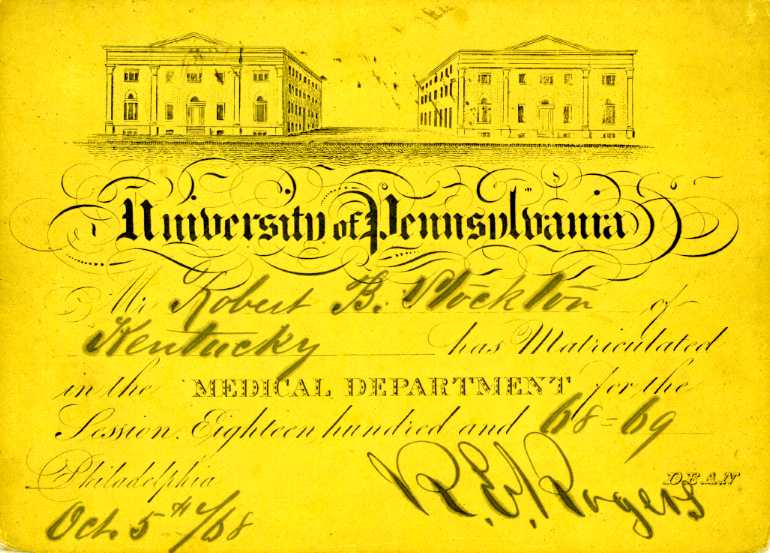 University of Pennsylvania
Mr Robert B. Stockton of
Kentucky has Matriculated
in the MEDICAL DEPARTMENT for the
Session Eighteen hundred and 68=69
Philadelphia
R. E. Rogers DEAN
Oct. 5th/68